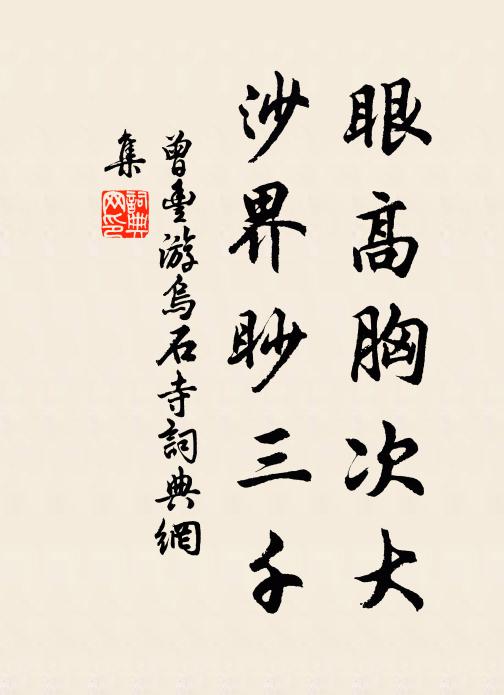 眼高胸次大
沙界眇三千
曾豊游烏石寺詞典網
集
詞典
网印